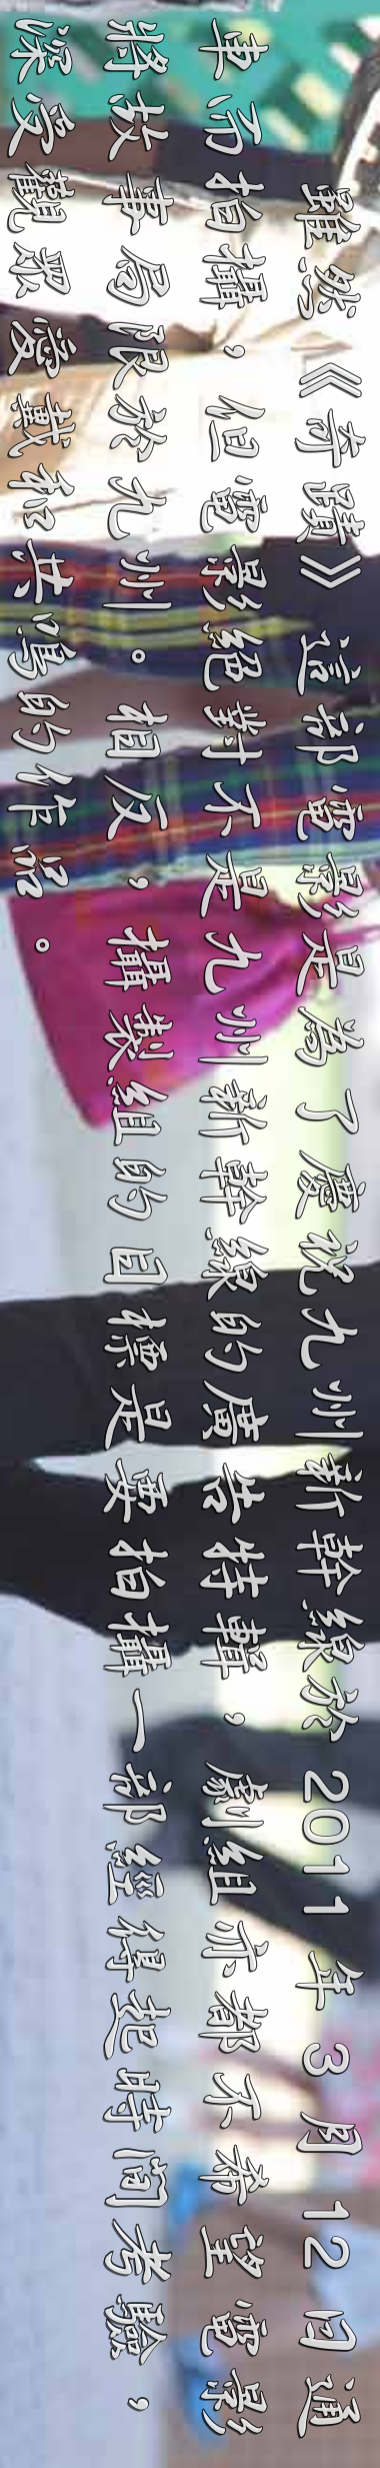 雖然《奇蹟》這部電影是為了慶祝九州新幹線於2011年3月12日通
車而拍攝，但電影絕對不是九州新幹線的廣告特輯，劇組亦都不希望電影
將故事局限於九州。相反，攝製組的目標是要拍攝一部經得起時間考驗，
深受觀眾愛戴和共鳴的作品。